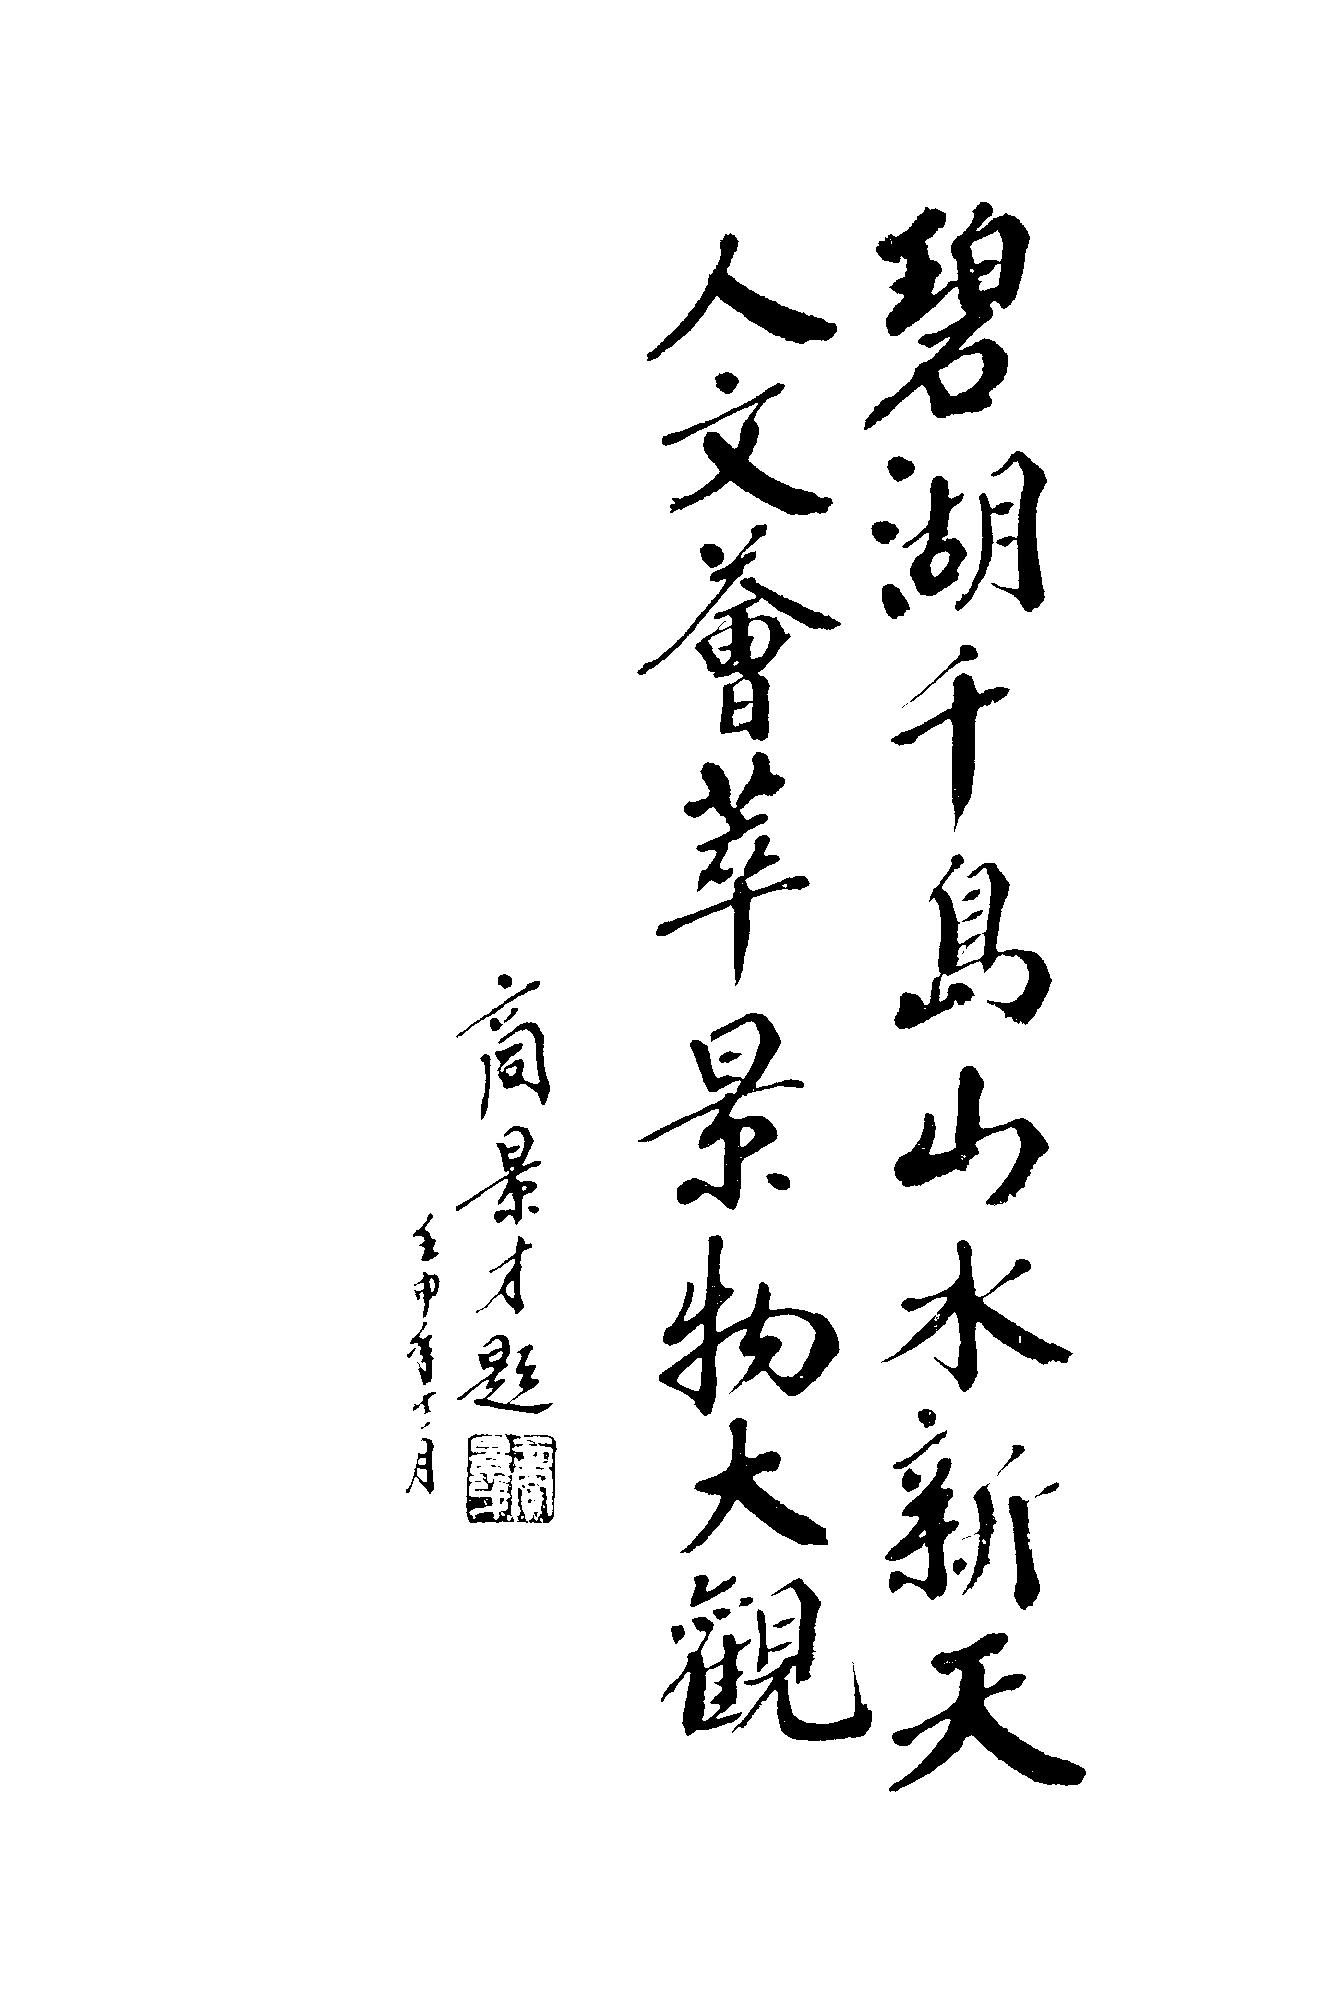 碧湖千島山水新天
人文薈萃景物大觀
商景才題
壬申年十一月